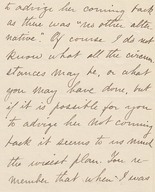 to advize her coming back
as there was "no other alter
native." Of course I do not
know what all the circum
stances may be, or what
you may have done, but
if it is possible for you
to advize her not coming
back it seems to me much
the wisest plan. You re
member that when I was